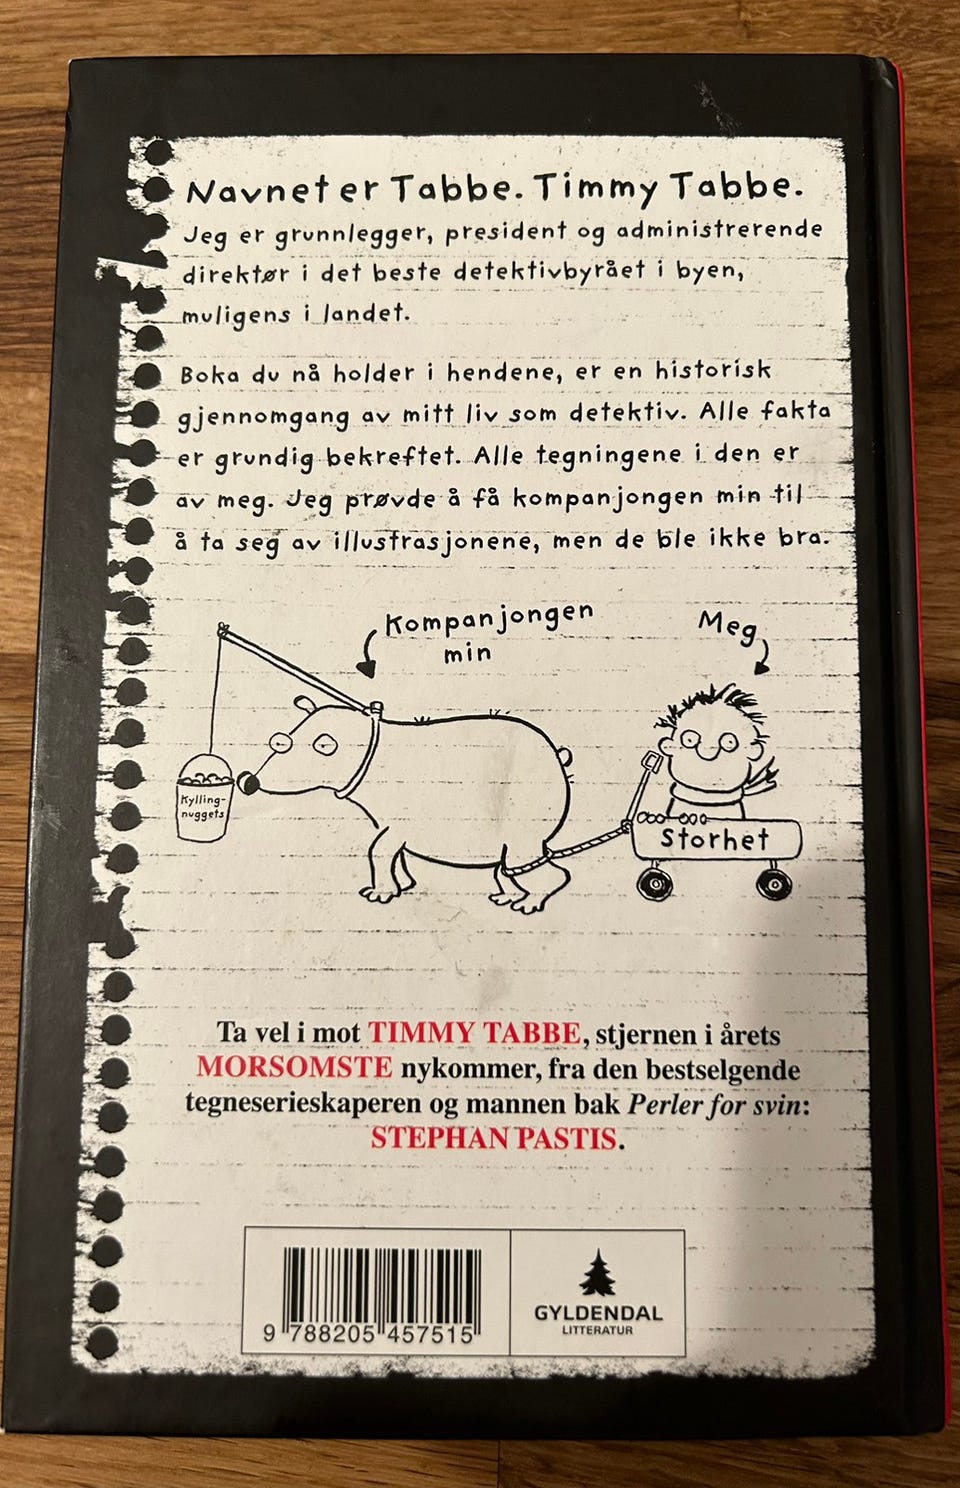 Navnet er Tabbe. Timmy Tabbe.
Jeg er grunnlegger, president og administrerende
direktør i det beste detektivbyrået i byen,
muligens i landet.
Boka du nå holder i hendene, er en historisk
gjennomgang av mitt liv som detektiv. Alle fakta
er grundig bekreftet. Alle tegningene i den er
av meg. Jeg prøvde å få kompanjongen min til
å ta seg av illustrasjonene, men de ble ikke bra.
Kompanjongen
min
Meg
Kylling-
nuggets
Storhet
Ta vel i mot TIMMY TABBE, stjernen i årets
MORSOMSTE nykommer, fra den bestselgende
tegneserieskaperen og mannen bak Perler for svin:
STEPHAN PASTIS.
9 788205 457515
GYLDENDAL
LITTERATUR